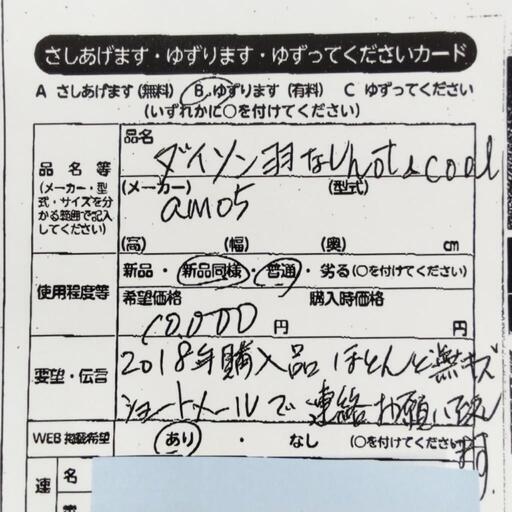 さしあげます・ゆずります・ゆずってくださいカード
A さしあげます（無料） B ゆずります（有料） C ゆずってください
（いずれかに○を付けてください）
品名等
（メーカー・型式・サイズを分かる範囲で記入してください）
品名
ダイソン羽なしhot&cool
（メーカー） （型式）
am05
（高） （幅） （奥） cm
使用程度等
新品・新品同様・普通・劣る（○を付けてください）
希望価格 購入時価格
10,000円 円
要望・伝言
2018年購入品 ほとんど無キズ
ショートメールで連絡お願い致します。
WEB掲載希望
あり・なし （○を付けてください）
連
名